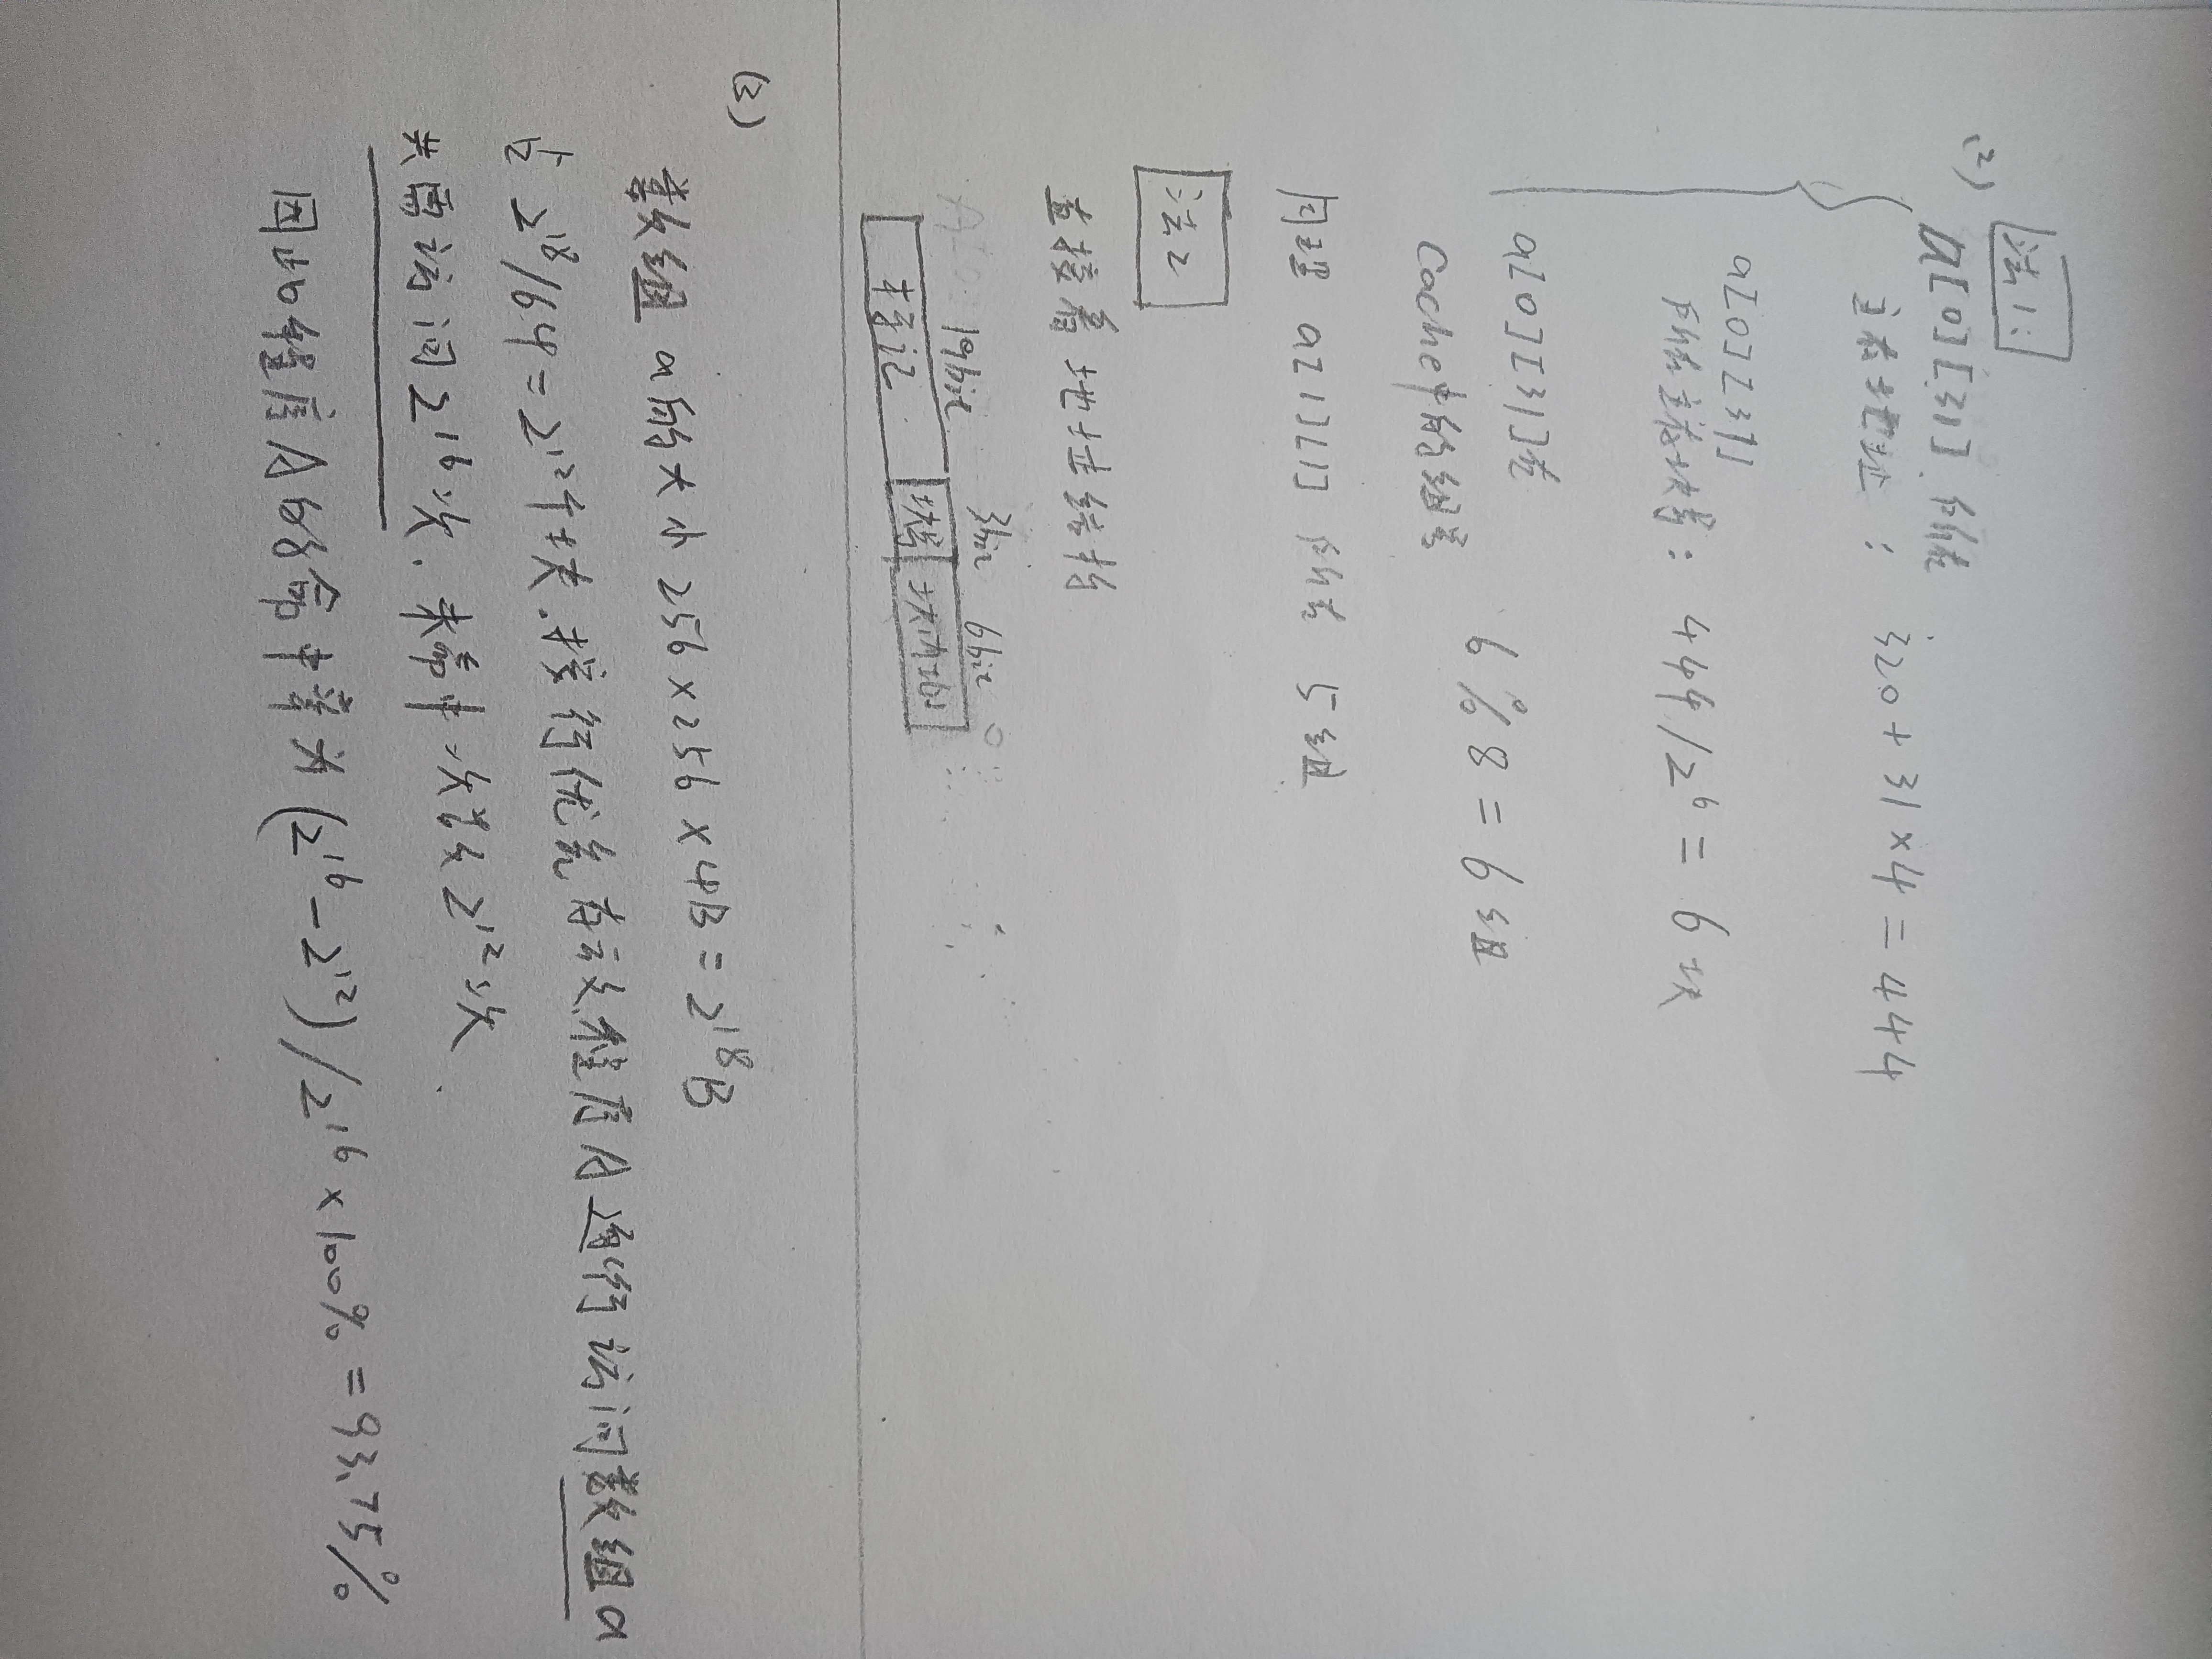 (2) 法1:
a[0][31] 所在
主存地址: 320+31×4=444
a[0][31]
所在主存块号: 444/2⁶=6块
a[0][31]在
Cache中的组号 6%8=6组
同理 a[1][1] 所在 5组
法2
直接看地址结构
19bit 3bit 6bit 0
标记 块号 块内
(3)
数组 a的大小 256×256×4B=2¹⁸B
占 2¹⁸/64=2¹²个块. 按行优先存放,程序A逐行访问数组a
共需访问2¹⁶次. 未命中次数2¹²次.
因此程序A的命中率为(2¹⁶-2¹²)/2¹⁶×100%=93.75%